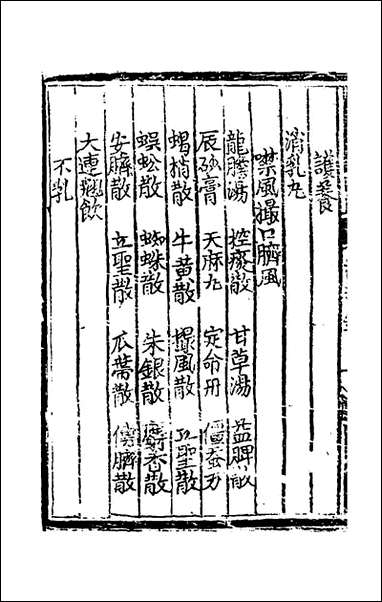 護養
消乳丸
噤風撮口臍風
龍膽湯 控痰散 甘草湯 益脾散
辰砂膏 天麻丸 定命丹 僵蚕方
蝎梢散 牛黄散 撮風散 五聖散
蜈蚣散 蜘蛛散 朱銀散 麝香散
安臍散 立聖散 瓜蔕散 臍散
大連翹飲
不乳